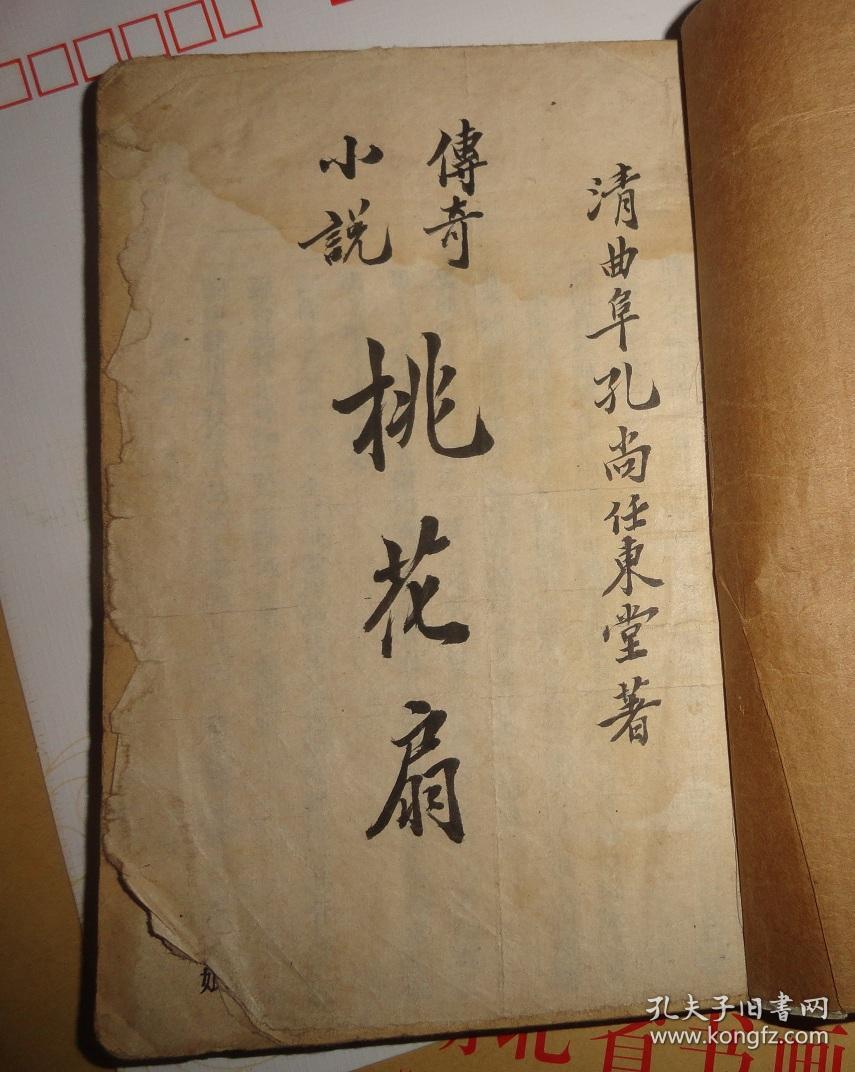 清曲阜孔尚任東堂著
傳奇
小説
桃花扇
如
省书画
孔夫子旧书网
www.kongfz.com